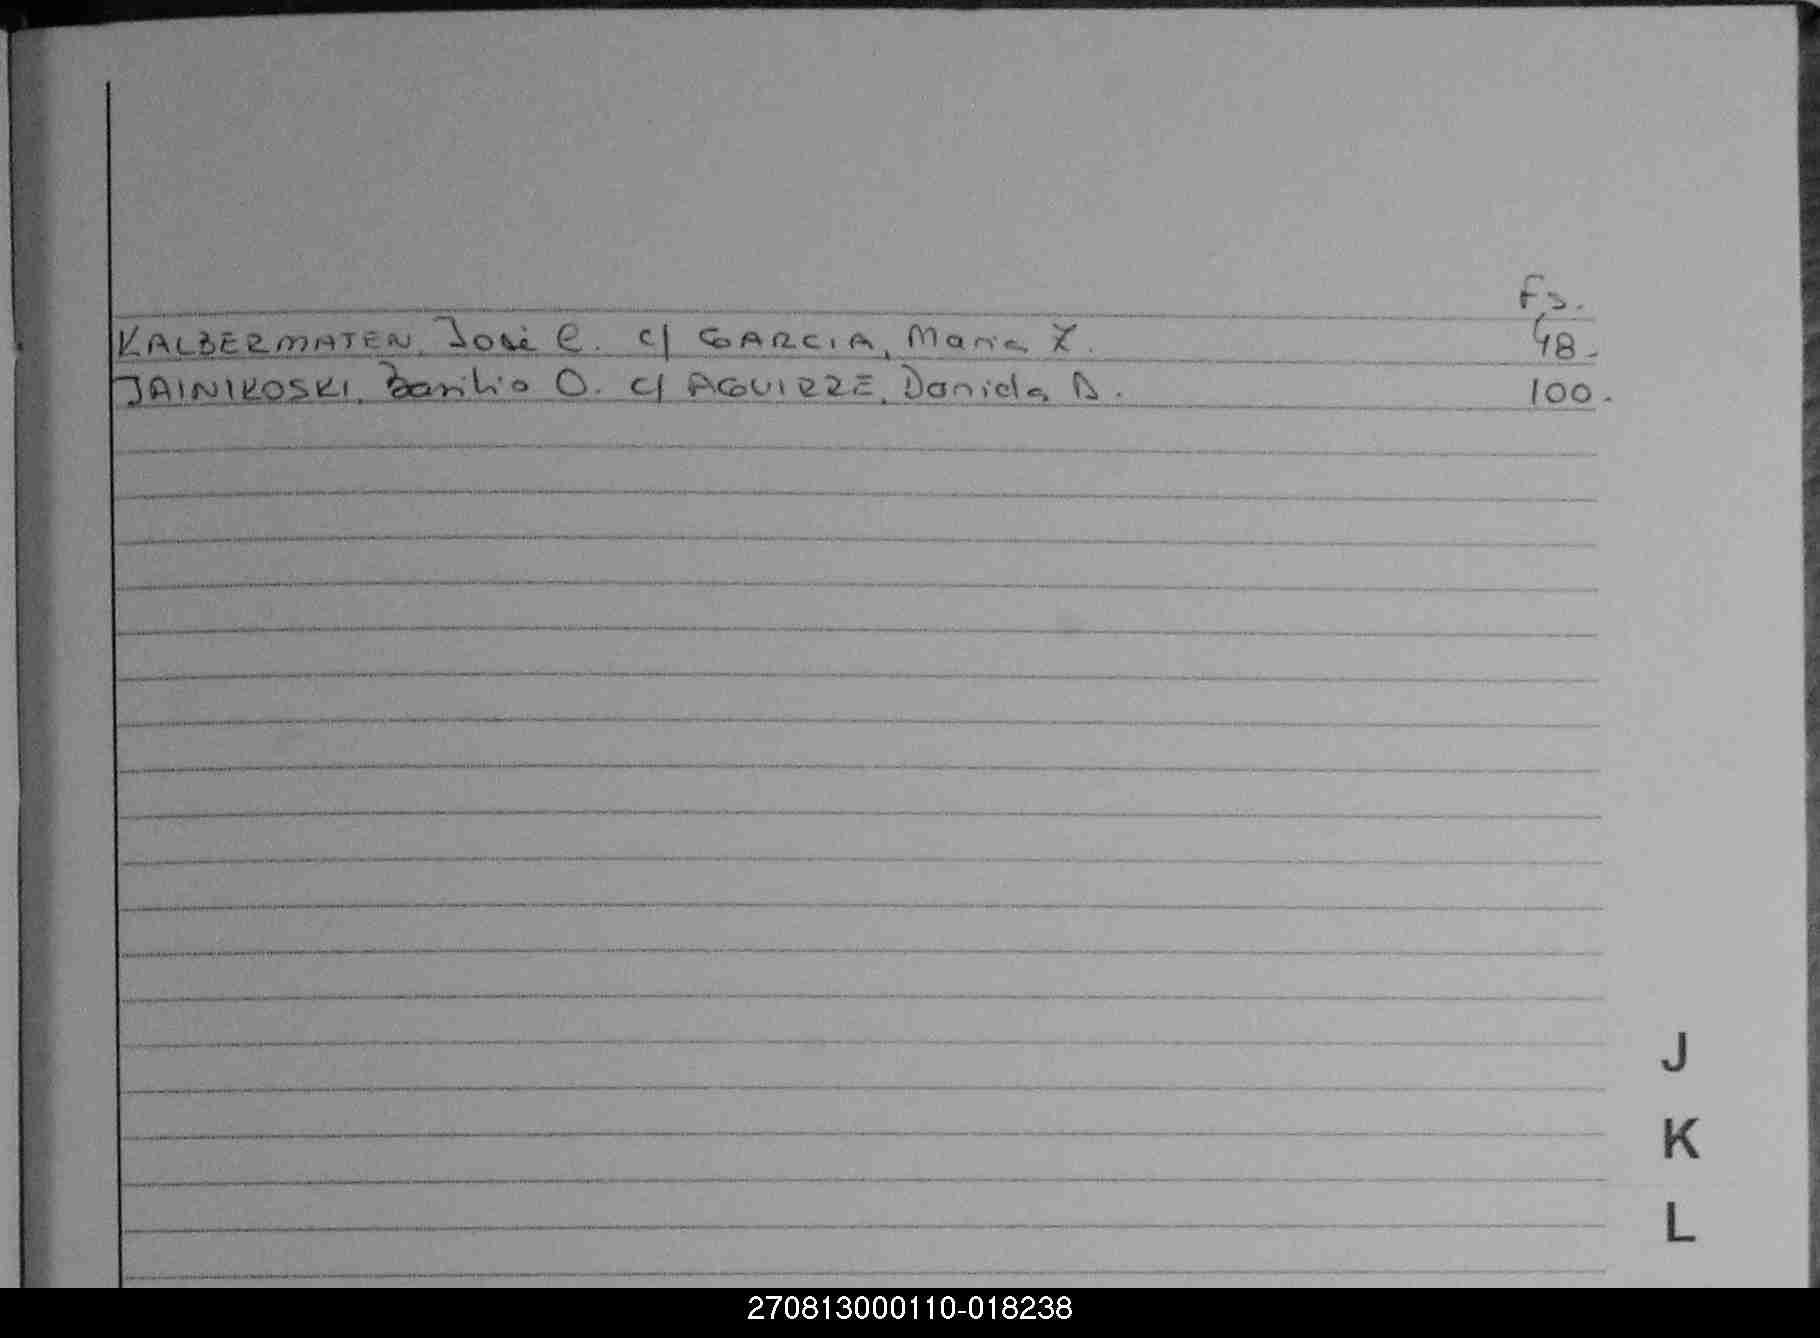 Fs.
KALBERMATEN, José C. c/ GARCIA, Maria Z. 48.
JAINIKOSKI, Basilio O. c/ AGUIRRE, Daniela A. 100.
J
K
L
270813000110-018238